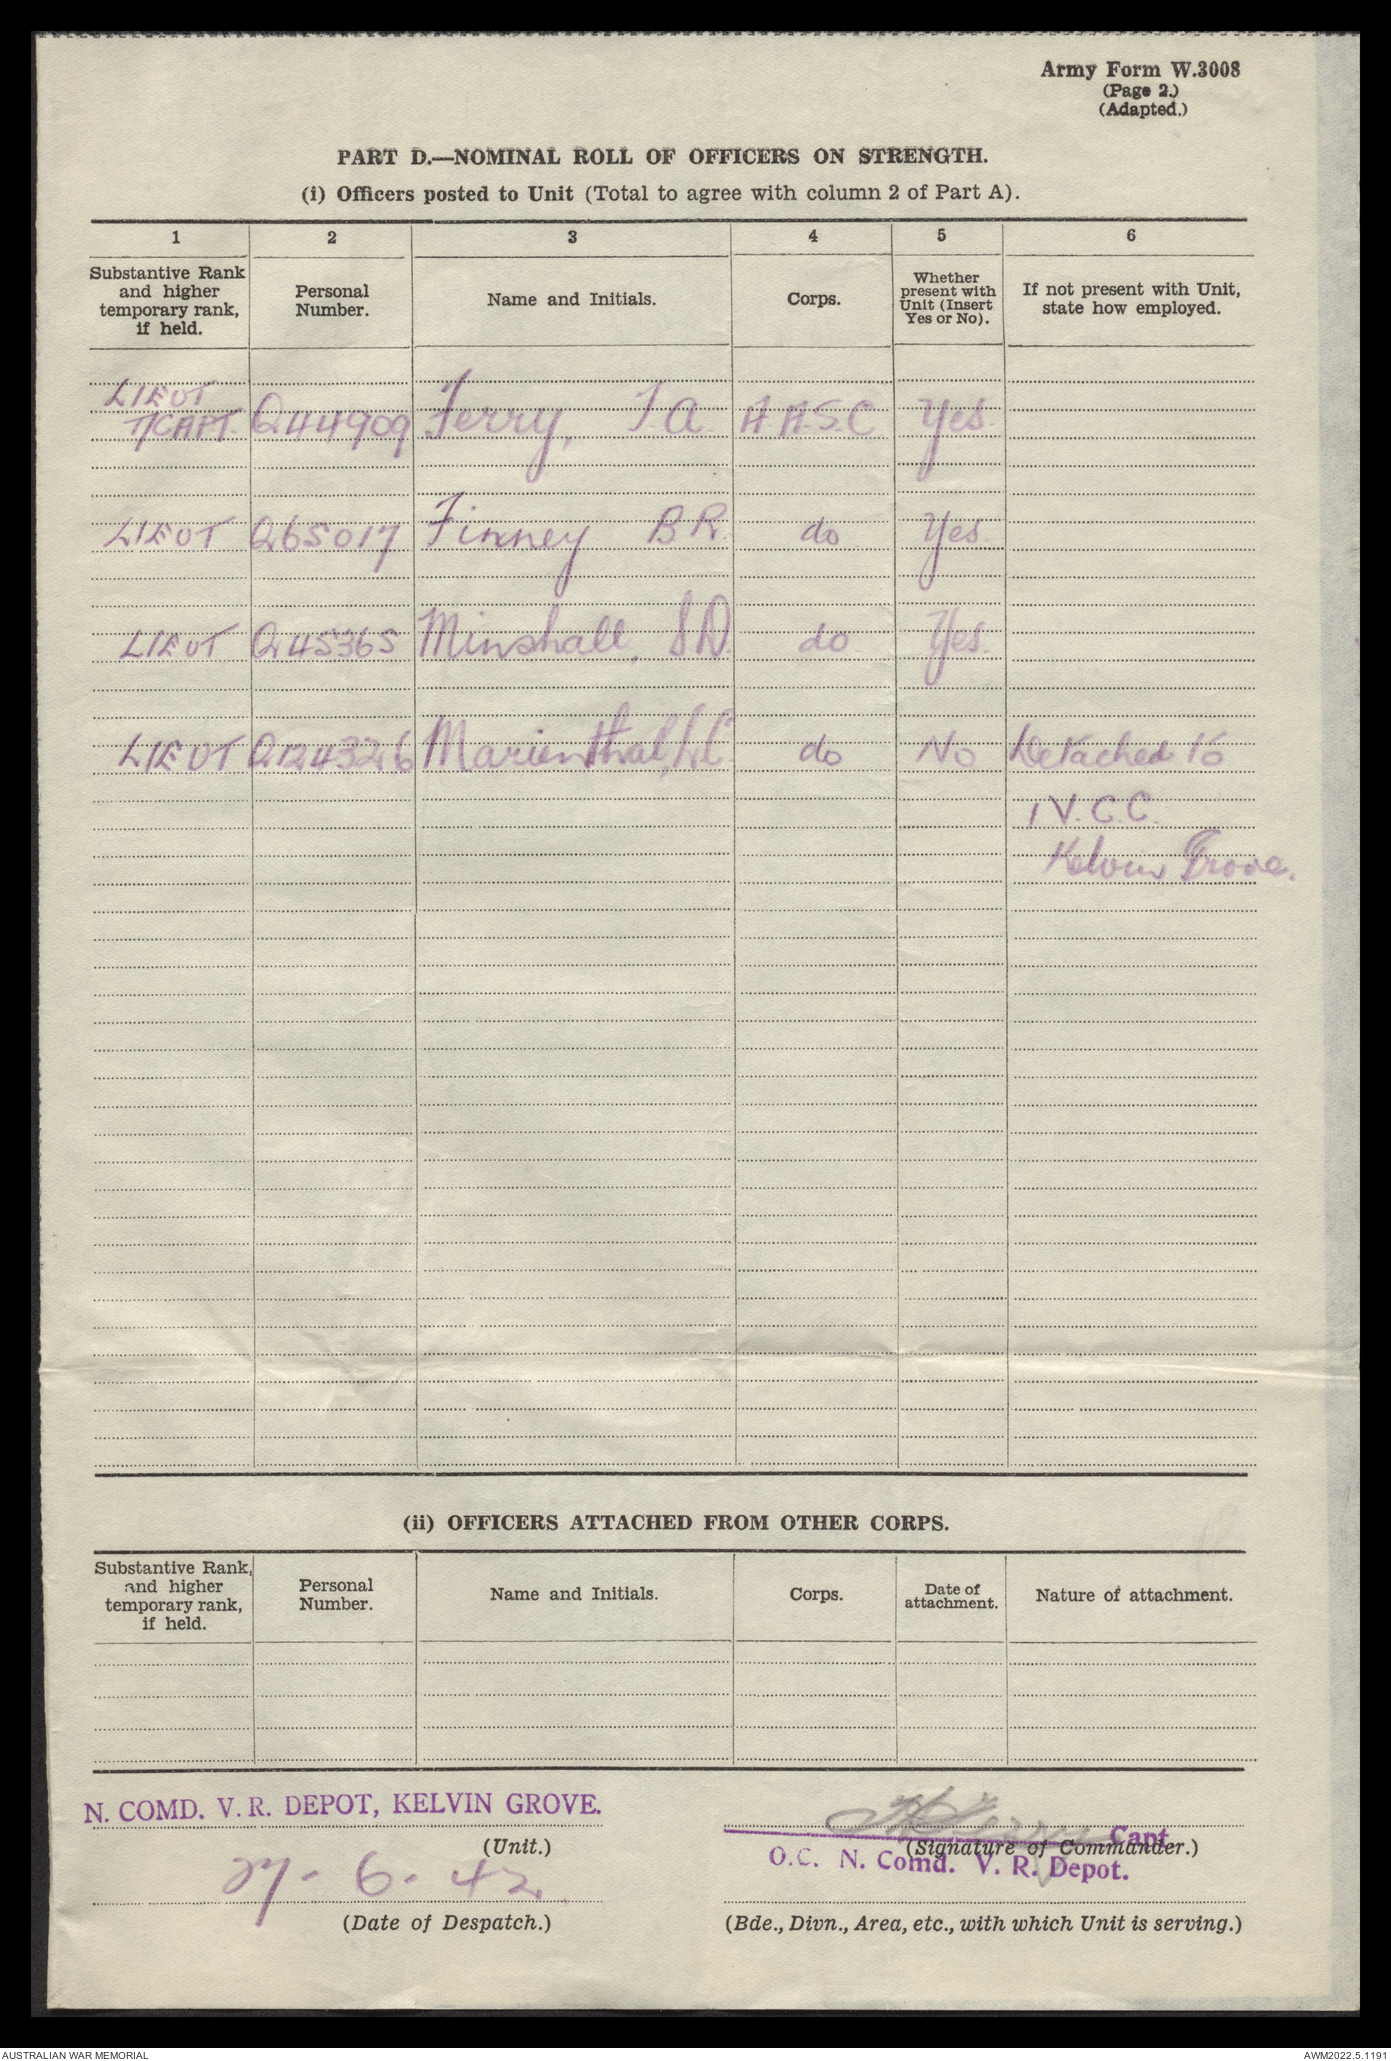 Army Form W.3008
(Page 2.)
(Adapted.)
PART D.—NOMINAL ROLL OF OFFICERS ON STRENGTH.
(i) Officers posted to Unit (Total to agree with column 2 of Part A).
1 2 3 4 5 6
Substantive Rank and higher temporary rank, if held. Personal Number. Name and Initials. Corps. Whether present with Unit (Insert Yes or No). If not present with Unit, state how employed.
LIEUT
T/CAPT. Q44909 Ferry, T.A. A.A.S.C Yes.
LIEUT Q65017 Finney B R. do Yes.
LIEUT Q45365 Minshall, S D. do Yes.
LIEUT Q124326 Marienthal, do No Detached to
1 V.C.C.
Kelvin Grove.
(ii) OFFICERS ATTACHED FROM OTHER CORPS.
Substantive Rank, and higher temporary rank, if held. Personal Number. Name and Initials. Corps. Date of attachment. Nature of attachment.
N. COMD. V. R. DEPOT, KELVIN GROVE.
(Unit.)
Ferry Capt
(Signature of Commander.)
O.C. N. Comd. V. R. Depot.
27-6-42
(Date of Despatch.)
(Bde., Divn., Area, etc., with which Unit is serving.)
AUSTRALIAN WAR MEMORIAL
AWM2022.5.1191